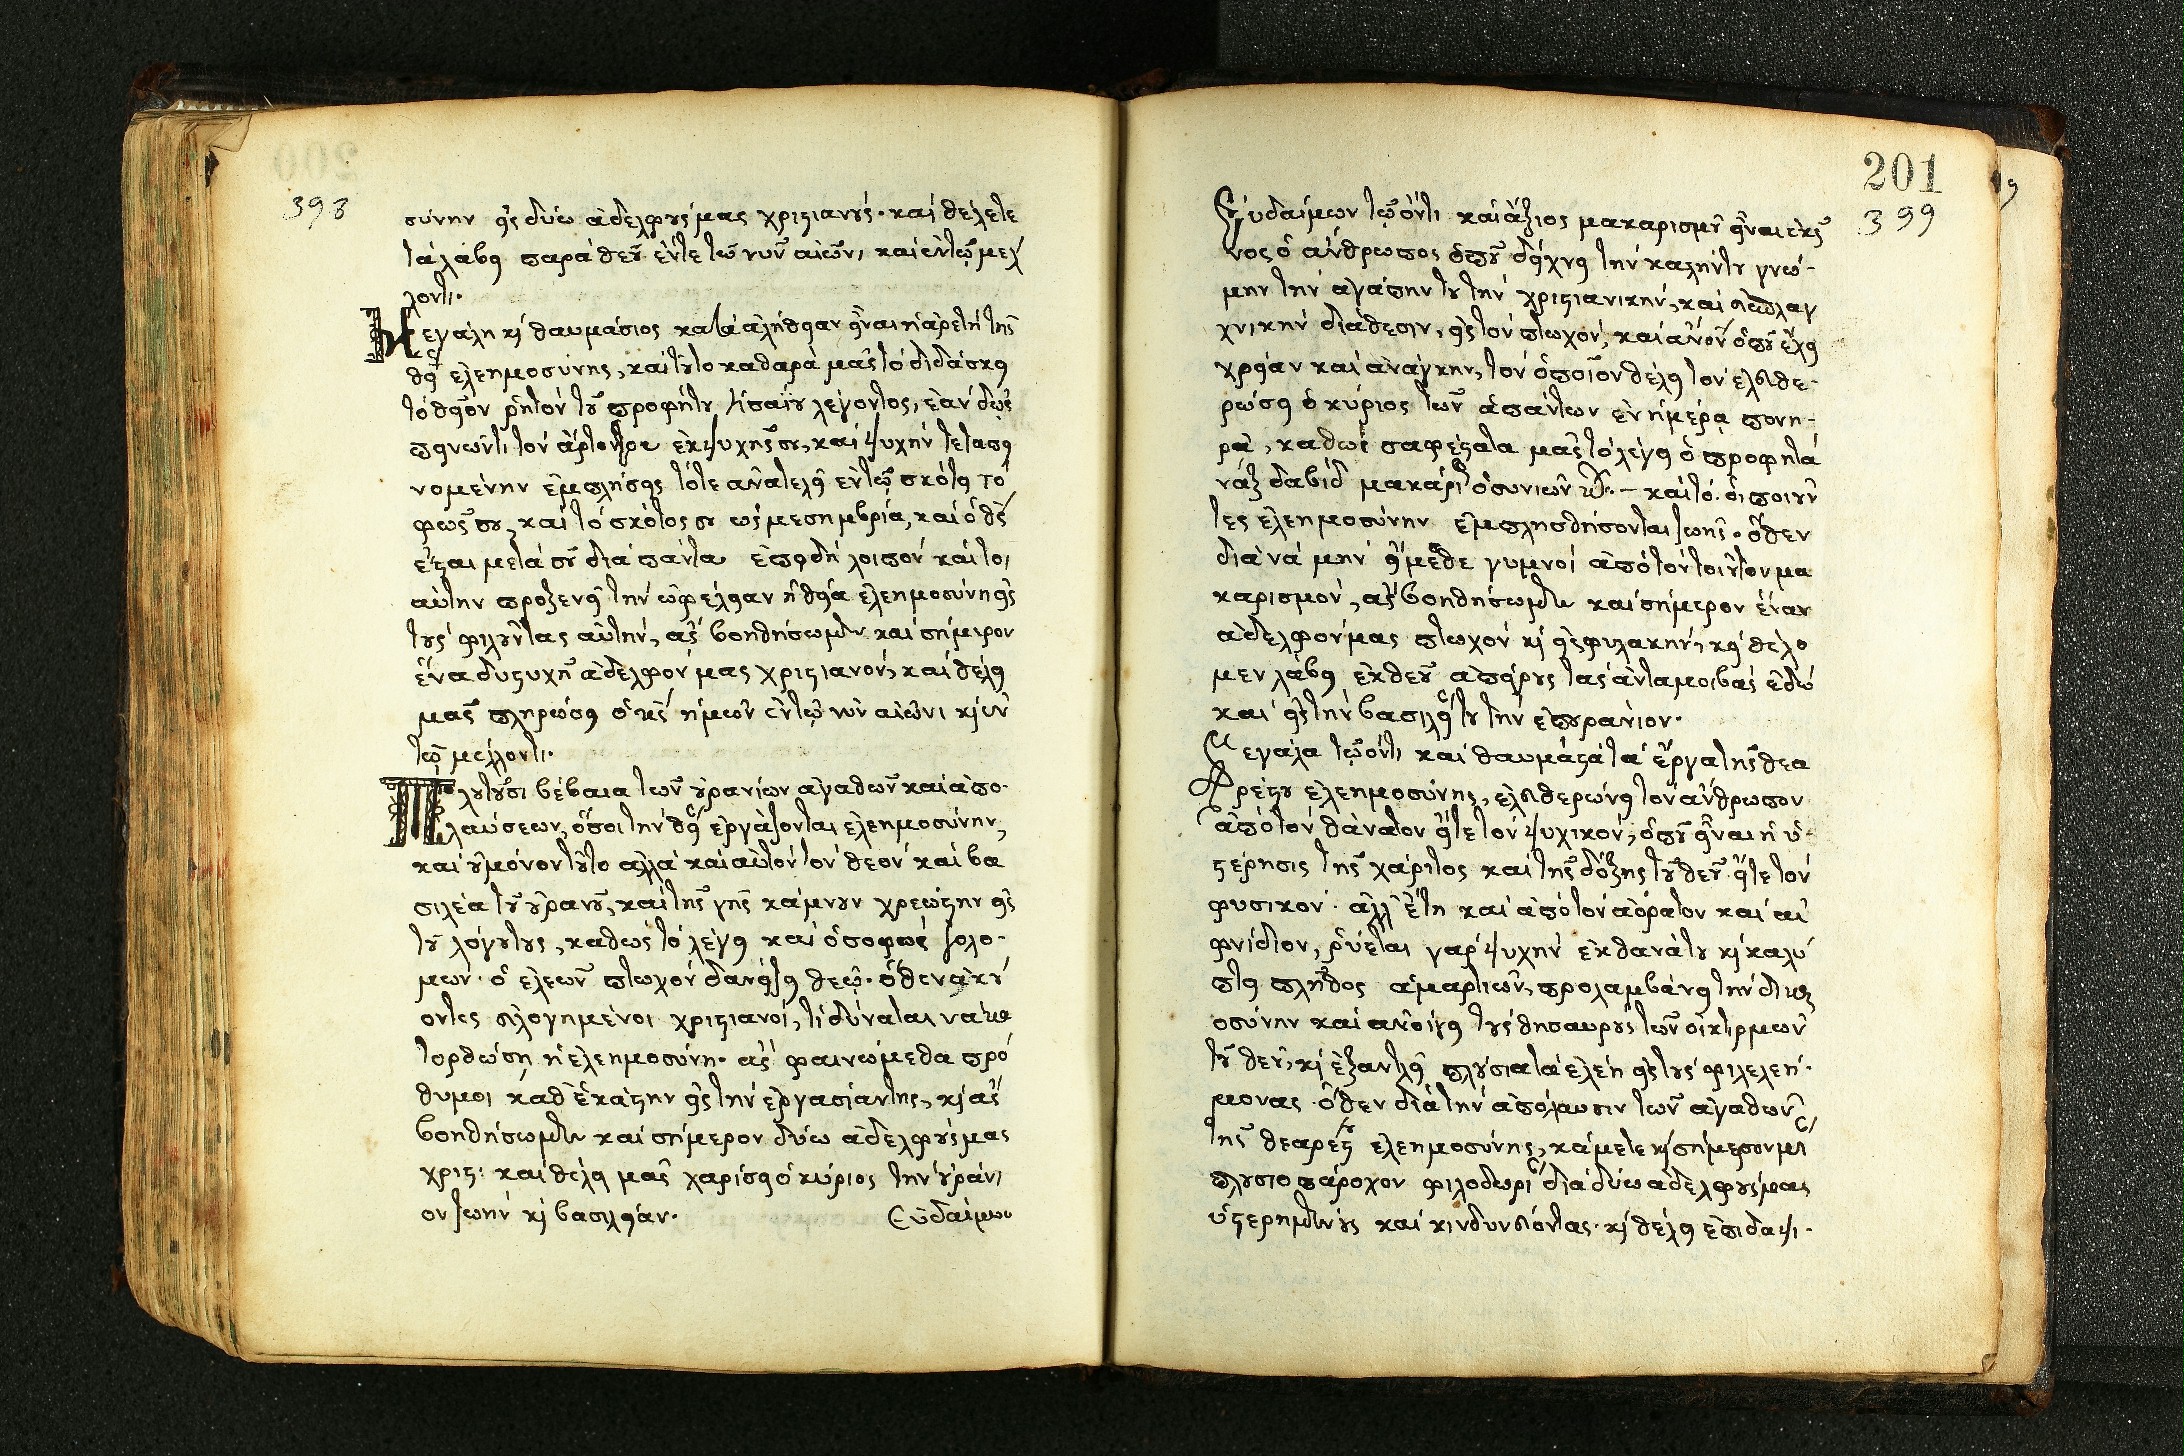 398
σύνην εἰς δύω ἀδελφούς μας χριστιανούς. καὶ θέλετε
τὰ λάβει παρὰ θεοῦ ἔν τε τῷ νῦν αἰῶνι, καὶ ἐν τῷ μέλ
λοντι.
Μεγάλη κ̀ θαυμάσιος κατὰ ἀλήθειαν εἶναι ἡ ἀρετὴ τῆς
θεί ἐλεημοσύνης, καὶ τοῦτο καθαρὰ μᾶς τὸ διδάσκει
τὸ θεῖον ῥητὸν τοῦ προφήτου Ἡσαΐου λέγοντος, ἐὰν δῷς
πεινῶντι τὸν ἄρτον σου ἐκ ψυχῆς σου, καὶ ψυχὴν τεταπει
νομένην ἐμπλήσεις τότε ἀνατελεῖ ἐν τῷ σκότει τὸ
φῶς σου, καὶ τὸ σκότος σου ὡς μεσημβρία, καὶ ὁ θς
ἔσται μετὰ σοῦ διὰ παντα ἐπειδὴ λοιπὸν καὶ τοι
αύτην προξενεῖ τὴν ὠφέλειαν ἡ θεία ἐλεημοσύνη εἰς
τοὺς φιλοῦντας αὐτήν, ἂς βοηθήσωμεν καὶ σήμερον
ἕνα δυστυχῆ ἀδελφόν μας χριστιανόν, καὶ θέλει
μᾶς πληρώσει ὁ κς ἡμῶν ἐν τῷ νῦν αἰῶνι κ̀ ἐν
τῷ μέλλοντι.
Πλουτοῦσι βέβαια τῶν οὐρανίων ἀγαθῶν καὶ ἀπο-
λαύσεων, ὅσοι τὴν θεί ἐργάζονται ἐλεημοσύνην,
καὶ οὐ μόνον τοῦτο ἀλλὰ καὶ αὐτὸν τὸν θεὸν καὶ βα
σιλέα τοῦ οὐρανοῦ, καὶ τῆς γῆς κάμνουν χρεώστην εἰς
τοῦ λόγου τους, καθὼς τὸ λέγει καὶ ὁ σοφὸς σολο-
μών. ὁ ἐλεῶν πτωχὸν δανείζει θεῷ. ὅθεν ἀκού
οντες εὐλογημένοι χριστιανοί, τί δύναται νὰ κα
τορθώσῃ ἡ ἐλεημοσύνη. ἂς φαινώμεθα πρό
θυμοι καθ' ἑκάστην εἰς τὴν ἐργασίαν της, κ̀ ἂς
βοηθήσωμεν καὶ σήμερον δύω ἀδελφούς μας
χριστ: καὶ θέλει μᾶς χαρίσει ὁ κύριος τὴν οὐράνι
ον ζωὴν κ̀ βασιλείαν.
Εὐδαίμων
201
399
Εὐδαίμων τῷ ὄντι καὶ ἄξιος μακαρισμοῦ εἶναι ἐκεῖ
νος ὁ ἄνθρωπος ὁποῦ δείχνει τὴν καλήν του γνώ-
μην τὴν ἀγάπην του τὴν χριστιανικήν, καὶ εὐσπλαγ
χνικὴν διάθεσιν, εἰς τὸν πτωχόν, καὶ αὐτὸν ὁποῦ ἔχει
χρείαν καὶ ἀνάγκην, τὸν ὁποῖον θέλει τὸν ἐλευθε-
ρώσει ὁ κύριος τῶν ἁπάντων ἐν ἡμέρᾳ πονη-
ρᾷ, καθὼς σαφέστατα μᾶς τὸ λέγει ὁ προφητά
ναξ δαβίδ μακάρι ὁ συνιῶν κτ. – καὶ τὸ. οἱ ποιοῦν
τες ἐλεημοσύνην ἐμπλησθήσονται ζωῆς. ὅθεν
διὰ νὰ μὴν εἴμεσθε γυμνοὶ ἀπὸ τὸν τοιοῦτον μα
καρισμόν, ἂς βοηθήσωμεν καὶ σήμερον ἕναν
ἀδελφόν μας πτωχόν κ̀ εἰς φυλακήν, καὶ θέλο
μεν λάβει ἐκ θεοῦ ἀπείρους τὰς ἀνταμοιβὰς ἐδώ
καὶ εἰς τὴν βασιλεί του τὴν ἐπουράνιον.
Μεγάλα τῷ ὄντι καὶ θαυμαστὰ τὰ ἔργα τῆς θεα
ρέστου ἐλεημοσύνης, ἐλευθερώνει τὸν ἄνθρωπον
ἀπὸ τὸν θάνατον εἴτε τὸν ψυχικόν, ὁποῦ εἶναι ἡ ὑ-
στέρησις τῆς χάριτος καὶ τῆς δόξης τοῦ θεοῦ εἴτε τὸν
φυσικόν. ἀλλ' ἔτη καὶ ἀπὸ τὸν ἀόρατον καὶ αἰ
φνίδιον, ῥύεται γὰρ ψυχὴν ἐκ θανάτου κ̀ καλύ
πτει πλῆθος ἁμαρτιῶν, προλαμβάνει τὴν δικαι
οσύνην καὶ ἀνοίγει τοὺς θησαυροὺς τῶν οἰκτιρμῶν
τοῦ θεοῦ, κ̀ ἐξαντλεῖ πλούσια τὰ ἐλέη εἰς τοὺς φιλελεή-
μονας. ὅθεν διὰ τὴν ἀπόλαυσιν τῶν ἀγαθῶν
τῆς θεαρέστου ἐλεημοσύνης, κάμετε κ̀ σήμερον μί
πλουσιοπάροχον φιλοδωρί διὰ δύω ἀδελφούς μας
ὑστερημένους καὶ κινδυνεύοντας. κ̀ θέλει ἐπιδαψι-